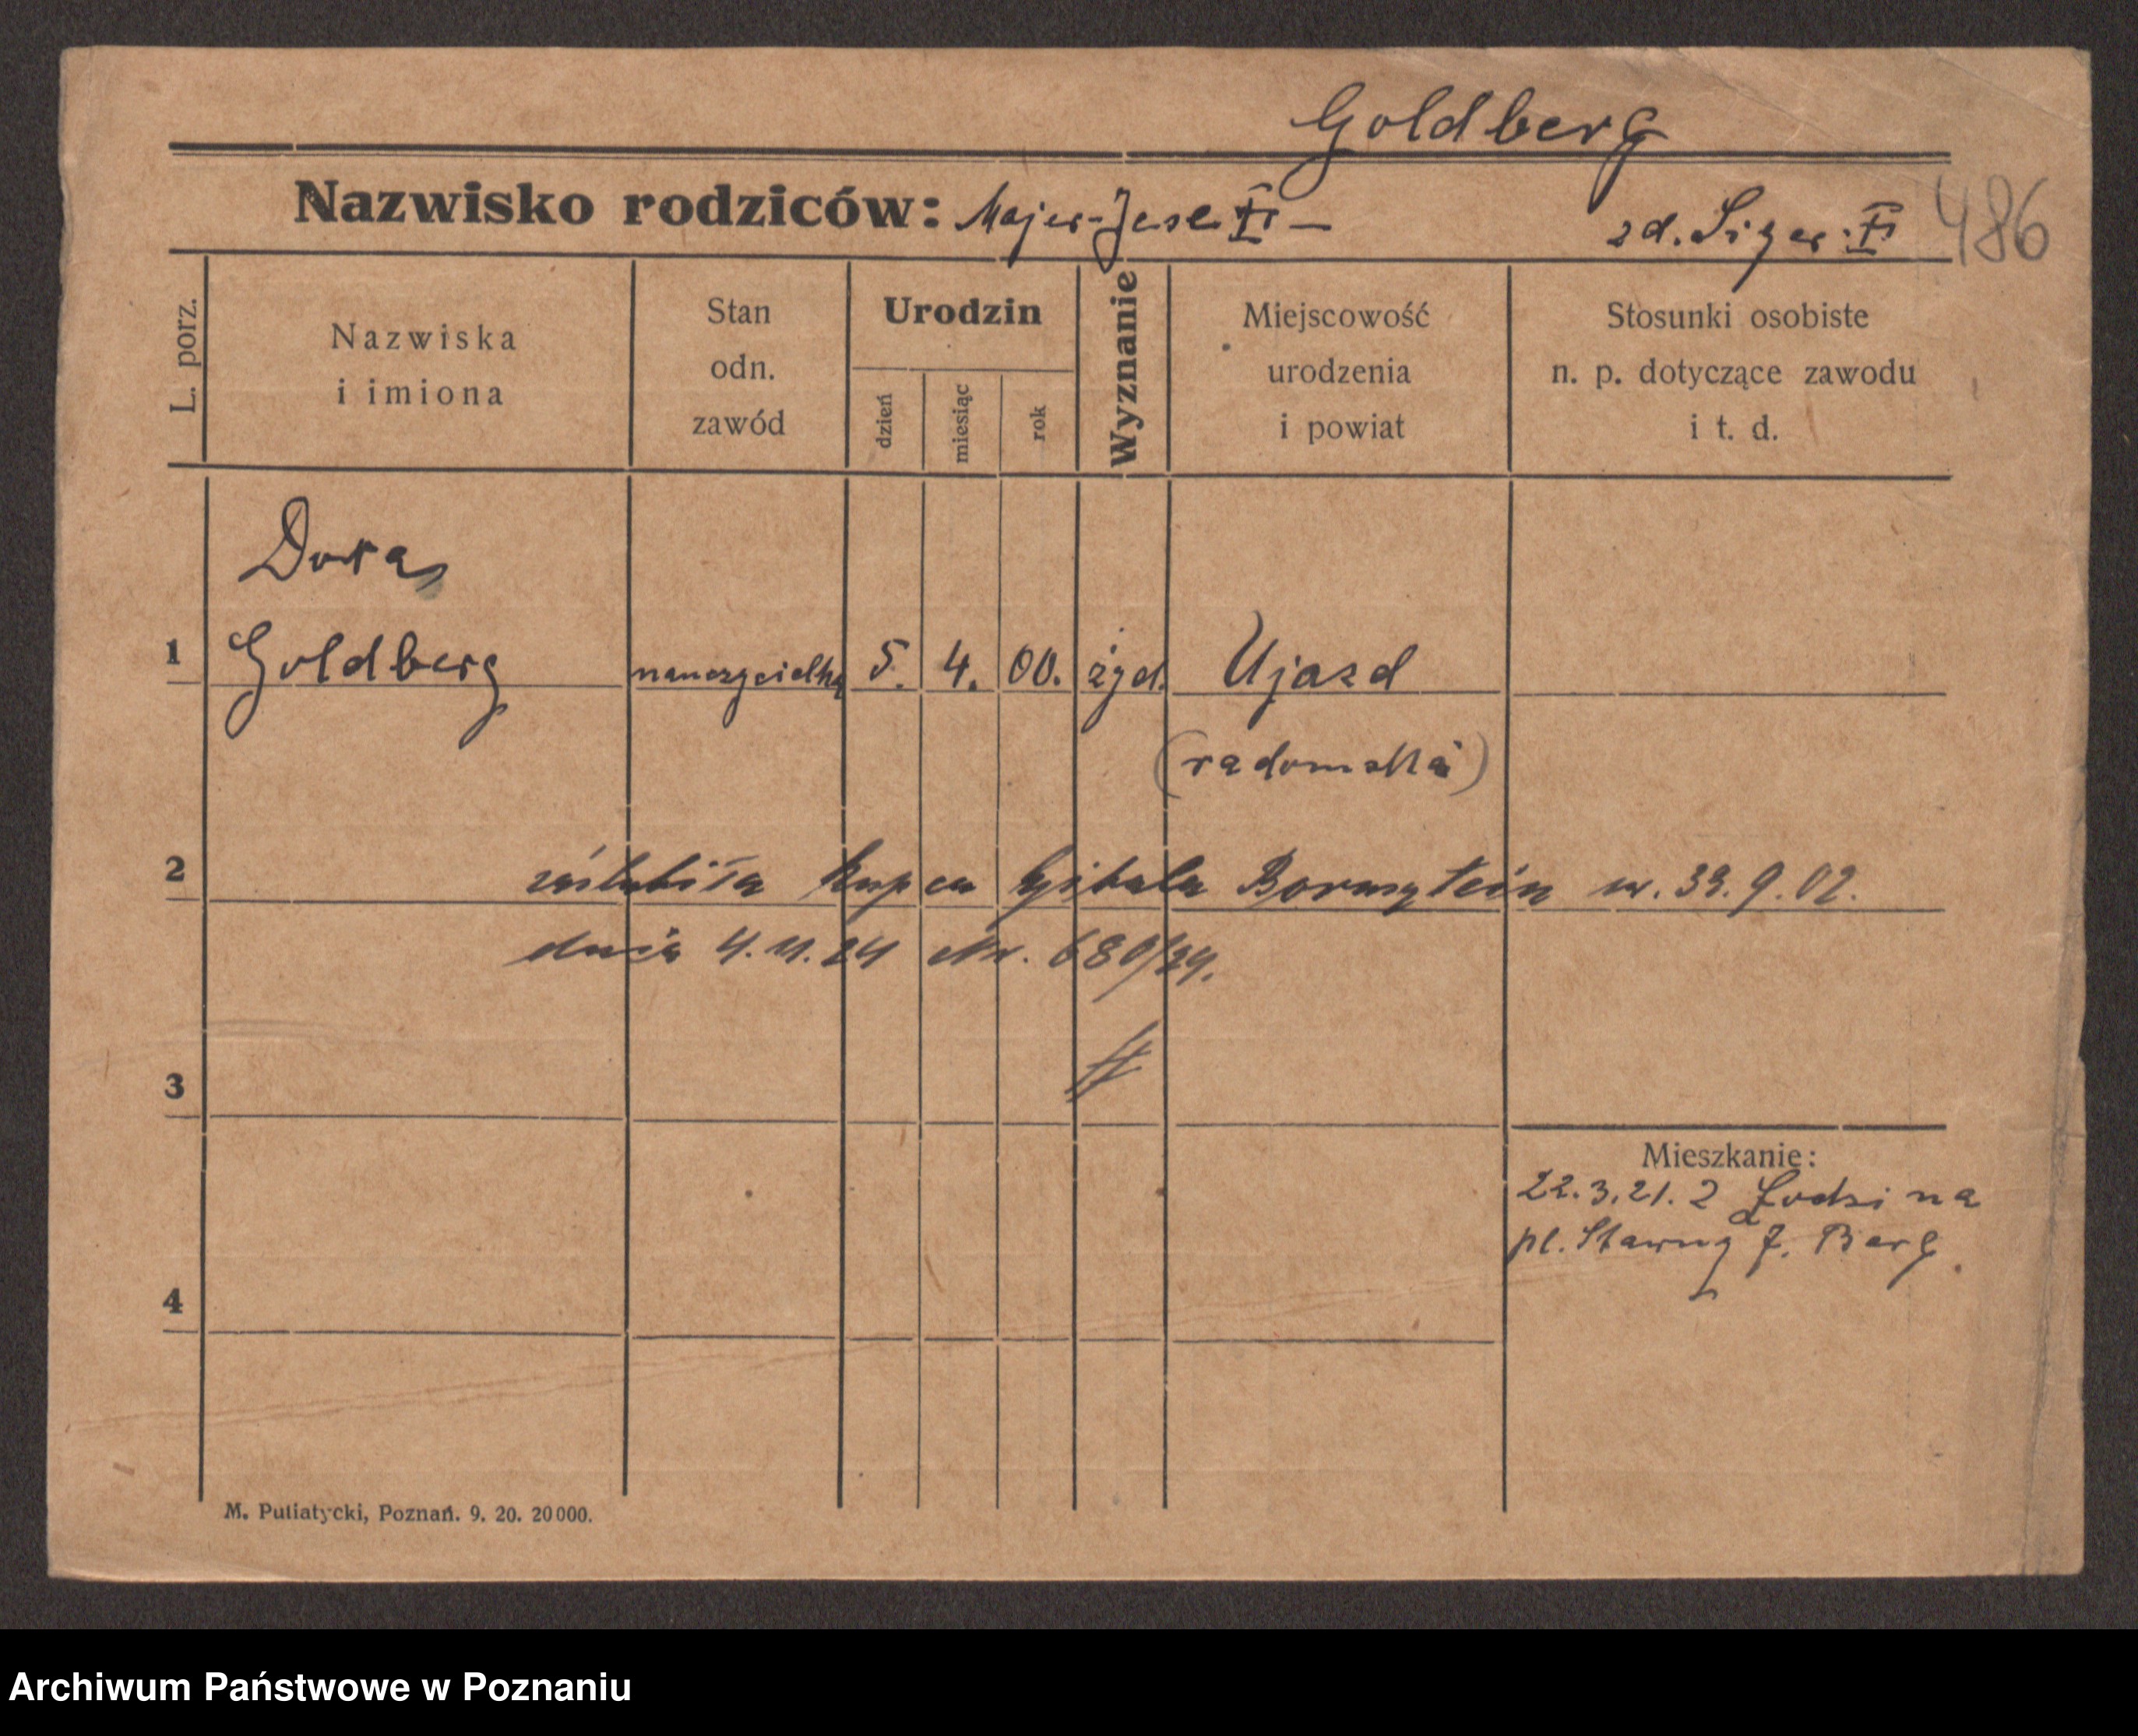 Goldberg
Nazwisko rodziców: Majer-Jesek — zd. Siger 486
L. porz.
Nazwiska
i imiona
Stan
odn.
zawód
Urodzin
dzień
miesiąc
rok
Wyznanie
Miejscowość
urodzenia
i powiat
Stosunki osobiste
n. p. dotyczące zawodu
i t. d.
Dora
1 Goldberg nauczycielka 5. 4. 00. żyd. Ujazd
(radomska)
2 zaślubiła kupca Bornsztein ur. 9.02.
dnia 4.11.24 Nr. 680/24.
3
Mieszkanie:
22.3.21. z Łodzi na
pl. Sławny J. Berg.
4
M. Putiatycki, Poznań. 9. 20. 20000.
Archiwum Państwowe w Poznaniu